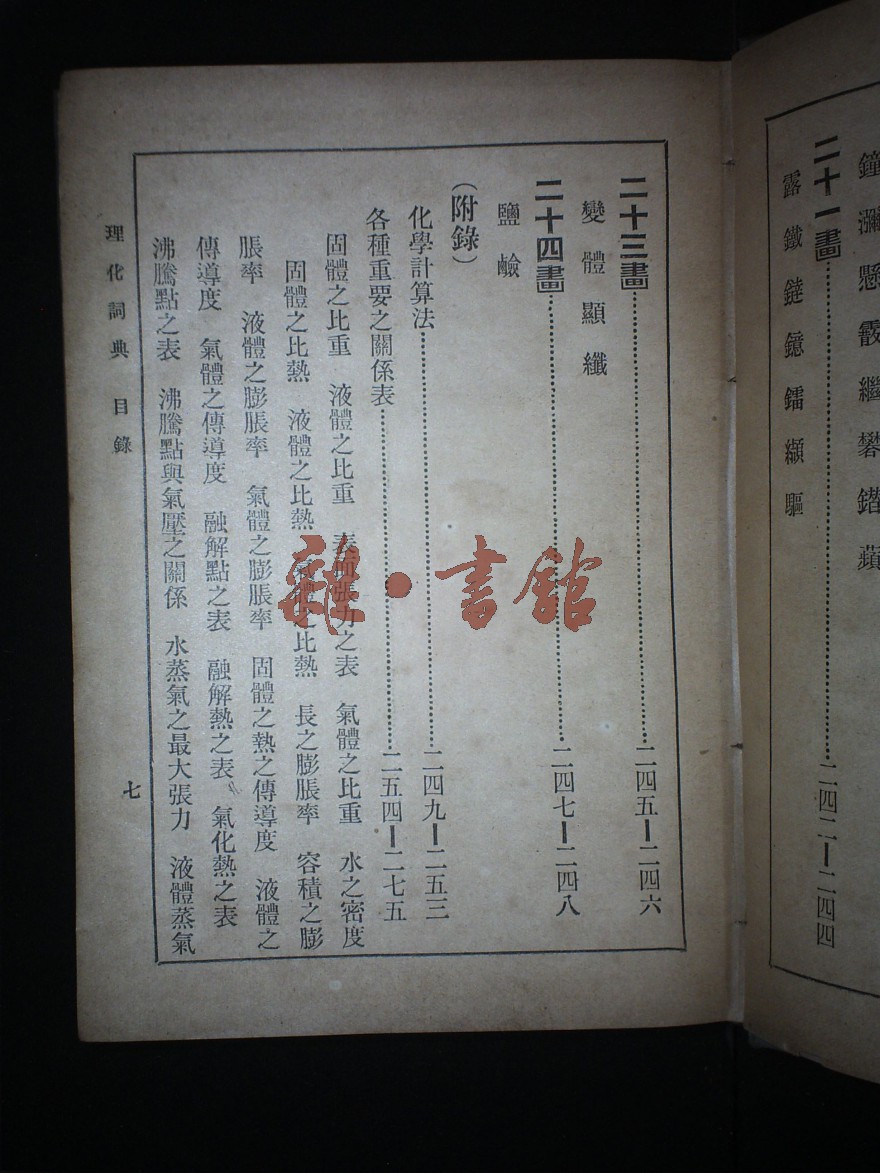 鐘瀰懸霰繼礬鐕蘋
二十一畫……二四二—二四四
露鐵鐽鐿鐳纈驅
二十三畫……二四五—二四六
變體顯纖
二十四畫……二四七—二四八
鹽鹼
（附錄）
化學計算法……二四九—二五三
各種重要之關係表……二五四—二七五
固體之比重　液體之比重　表面張力之表　氣體之比重　水之密度
固體之比熱　液體之比熱　氣體之比熱　長之膨脹率　容積之膨
脹率　液體之膨脹率　氣體之膨脹率　固體之熱之傳導度　液體之
傳導度　氣體之傳導度　融解點之表　融解熱之表　氣化熱之表
沸騰點之表　沸騰點與氣壓之關係　水蒸氣之最大張力　液體蒸氣
理化詞典　目錄
七
雜·書館